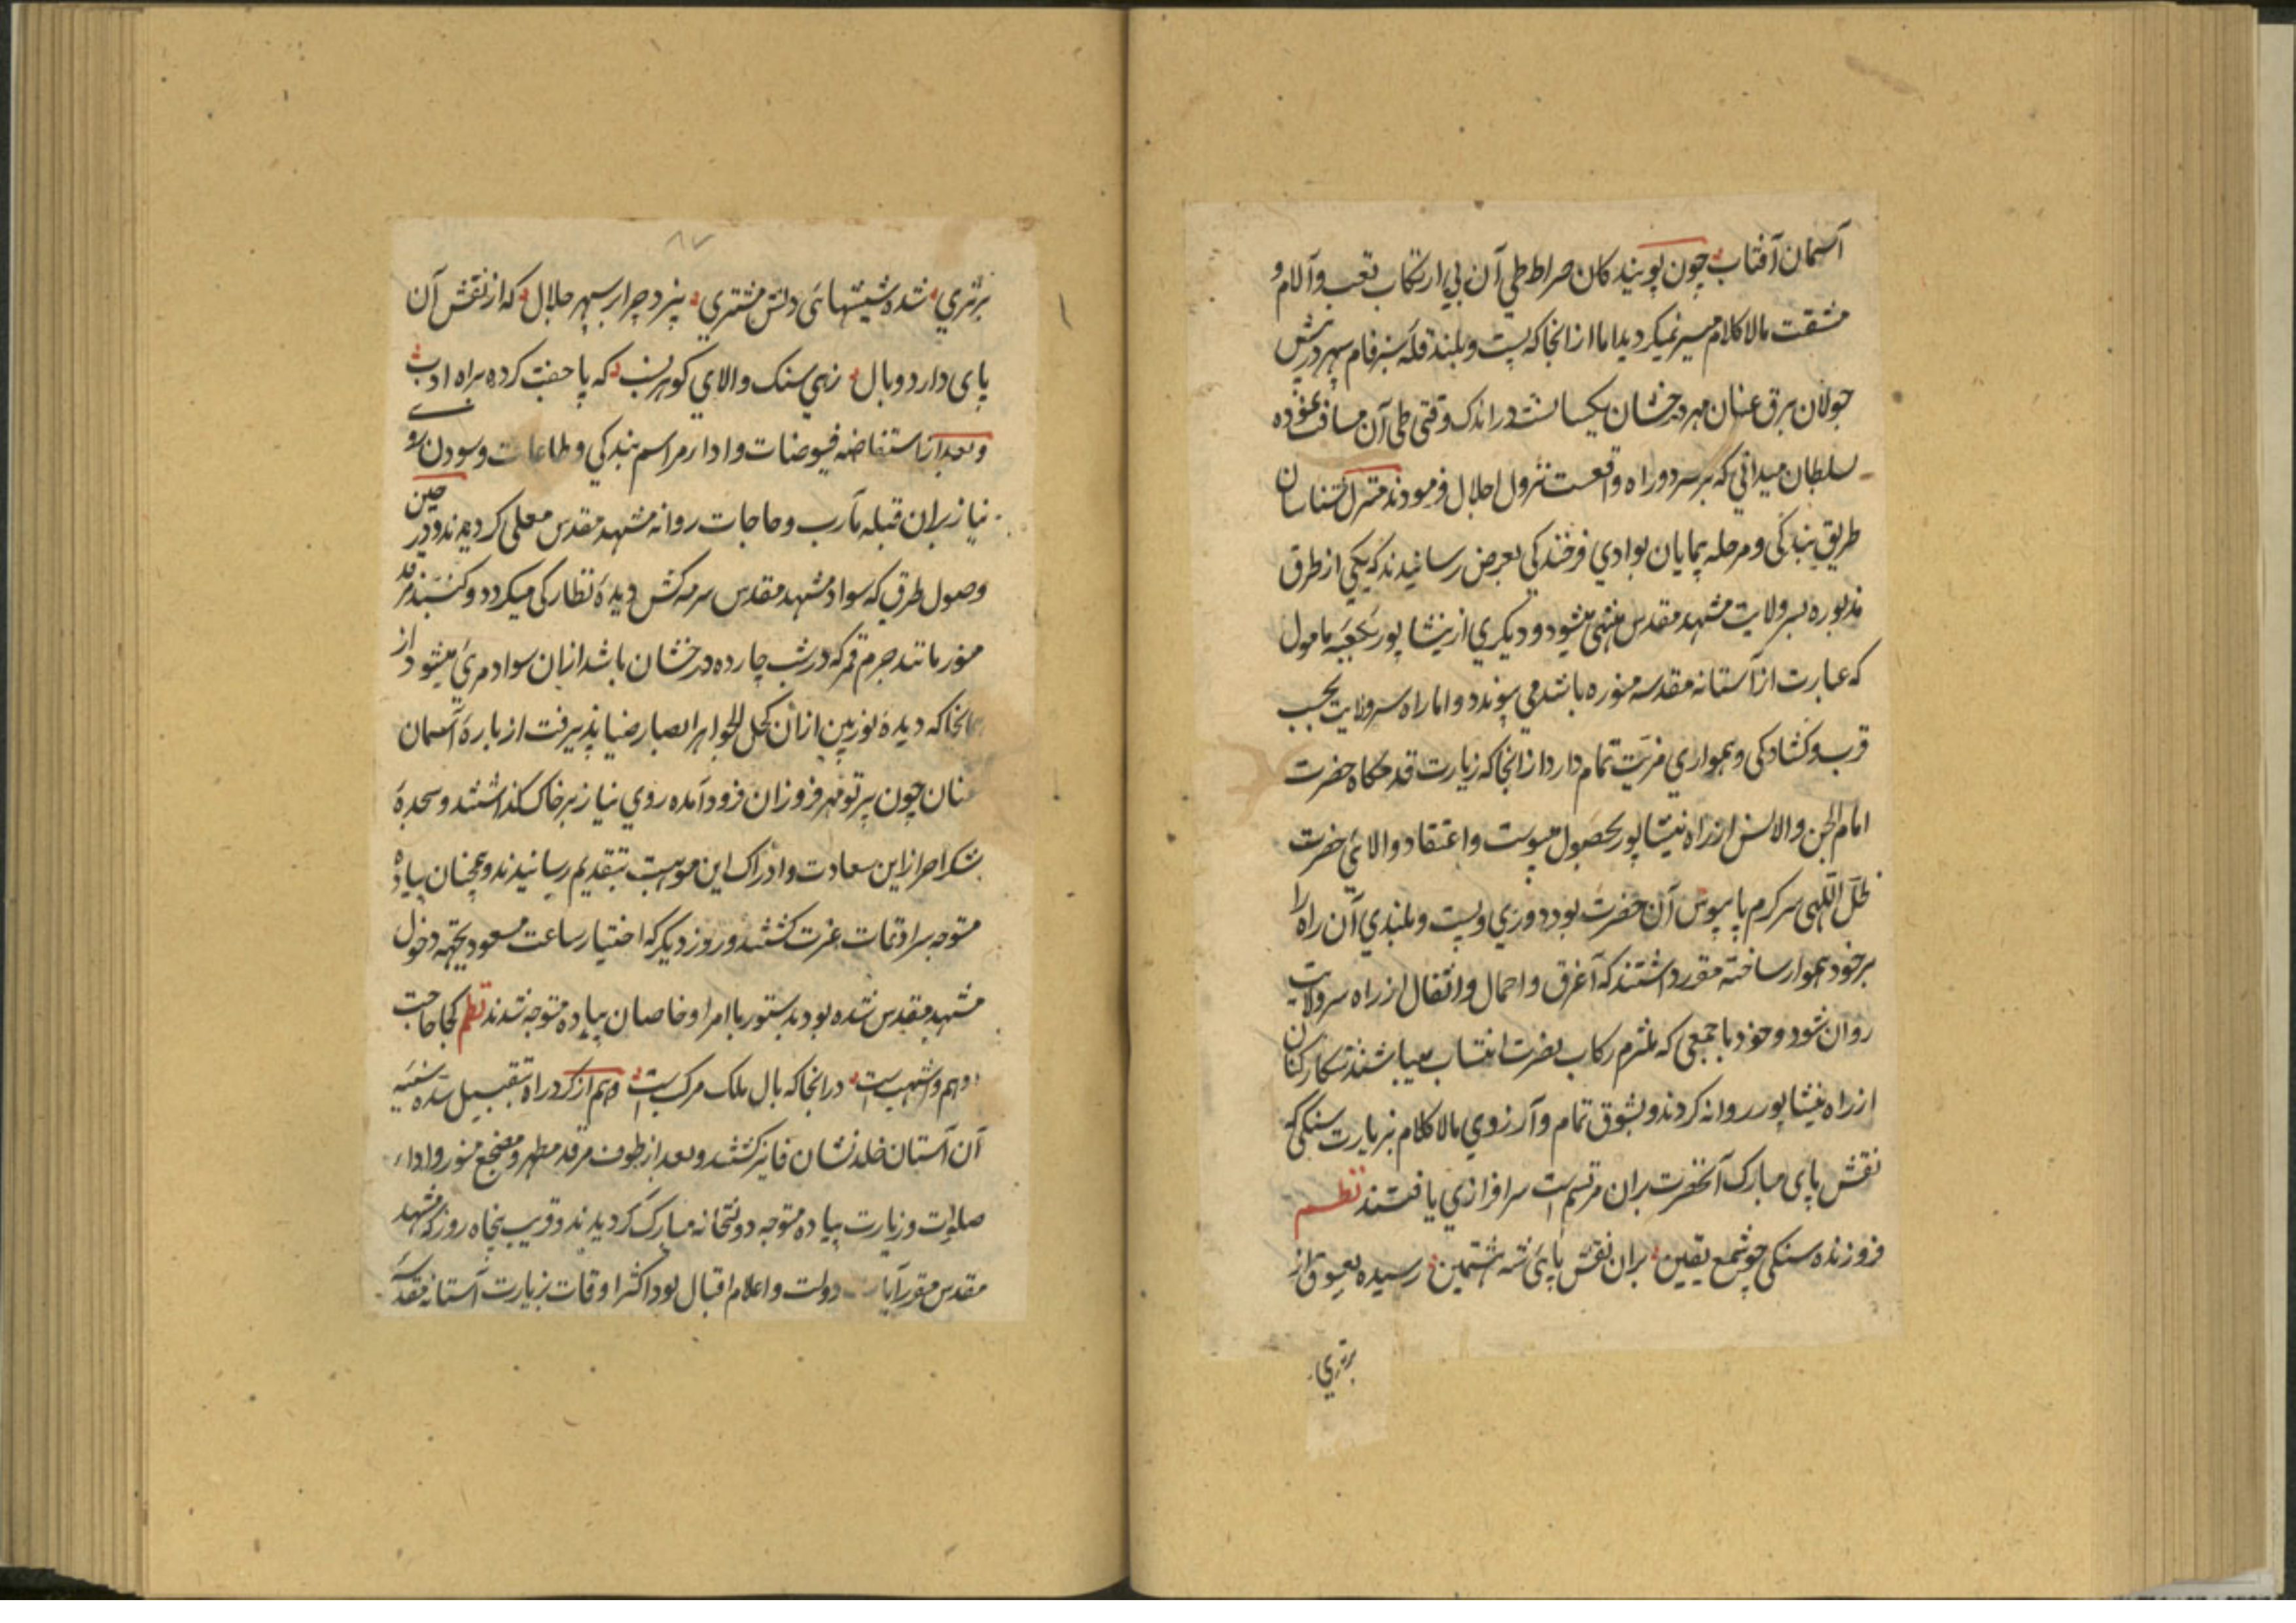 آسمان آفتاب چون پویند کان صراط طی آن بی ارتکاب تعب و آلام و
مشقت مالاکلام میسر نمیکردید اما از انجا که پست و بلند قله سبز فام سپهر در پیش
جولان برق عنان مهر درخشان یکسانست در اندک وقتی طی آن مسافت نموده
سلطان میدانی که بر سر دو راه واقعست نزول اجلال فرمودند منزل شناسان
طریق بندکی و مرحله پیمایان بوادی فرخندکی بعرض رسانیدند که یکی از طرق
مذبوره بسر ولایت مشهد مقدس منتهی میشود و دیکری از نیشاپور بکعبه مامول
که عبارت از آستانه مقدسه منوره باشد می پیوندد و اما راه سرولایت بحسب
قرب و کشادکی و همواری مزیت تمام دارد از انجا که زیارت قدمکاه حضرت
امام الجن و الانس از راه نیشاپور بحصول میپوست و اعتقاد والای حضرت
ظل اللهی سرکرم پاپبوس آن حضرت بود دوری و پست و بلندی آن راه را
بر خود هموار ساخته مقرر داشتند که آغرق و احمال و اثقال از راه سرولایت
روان شود و خود با جمعی که ملتزم رکاب نصرت انتساب میباشند شکار کنان
از راه نیشاپور روانه کردند و بشوق تمام و آرزوی مالاکلام بزیارت سنکی که
نقش پای مبارک آنحضرت بران مرتسم است سرافرازی یافتند نظم
فروزنده سنکی چو شمع یقین بران نقش پای شه هشتمین رسیده بعیوق از
برتری
۸۷
برتری شده شیشهای دلش مشتری پنزد چرا بر سپهر جلال که از نقش آن
پای دارد و بال زهی سنک والای کوهر نسب که پا جفت کرده براه ادب
و بعد از استفاضه فیوضات و ادار مراسم بندکی و طاعات و سودن روی
نیاز بران قبله مآرب و حاجات روانه مشهد مقدس معلی کردیدند و در حین
وصول طرق که سواد مشهد مقدس سرمه کش دیده نظارکی میکردد و کنبد مرقد
منور مانند جرم قمر که در شب چارده درخشان باشد ازبان سواد مرئی میشود از
انجا که دیده نور بین ازان کحل الجواهر ابصار ضیا پذیرفت از باره آسمان
عنان چون پرتو مهر فروزان فرود آمده روی نیاز بر خاک کذاشتند و سجده
شکر احراز این سعادت و ادراک این موهبت بتقدیم رسانیدند و همچنان پیاده
متوجه سرادقات عزت کشتند و روز دیکر که اختیار ساعت مسعود بجهه دخول
مشهد مقدس شده بود بدستور با امرا و خاصان پیاده متوجه شدند نظم کجا حاجت
ادهم و اشهبست درانجا که بال ملک مرکبست و هم از کرد راه بتقبیل سده سنیه
آن آستان خلد نشان فایز کشتند و بعد از طوف مرقد مطهر و مضجع منور و اداء
صلوات و زیارت پیاده متوجه دولتخانه مبارک کردیدند و قریب پنجاه روز که مشهد
مقدس مقر آیات دولت و اعلام اقبال بود اکثر اوقات بزیارت آستانه مقدسه